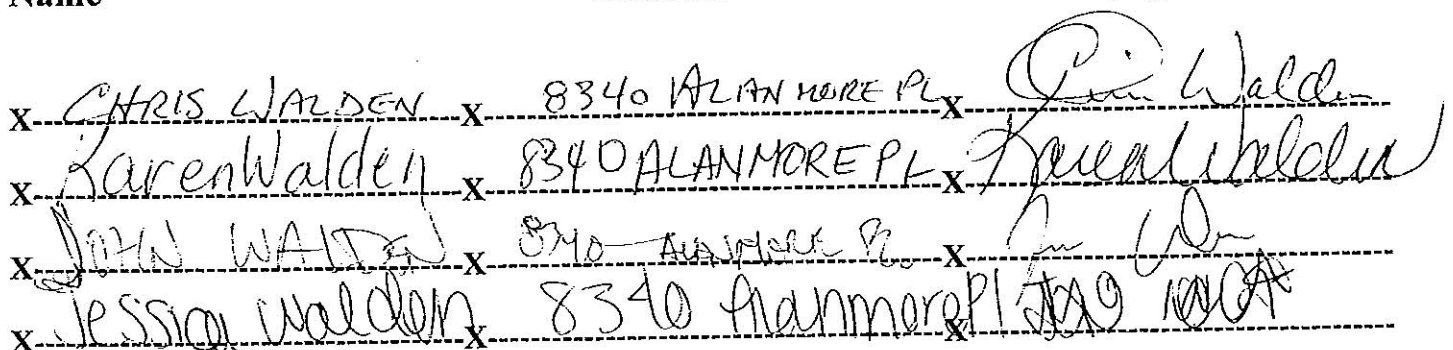 Name
X CHRIS WALDEN X 8340 ALANMORE PL X Chris Walden
X Karen Walden X 8340 ALANMORE PL X Karen Walden
X JOHN WALDEN X 8340 ALANMORE PL. X
X Jessica Walden X 8340 Alanmore Pl X